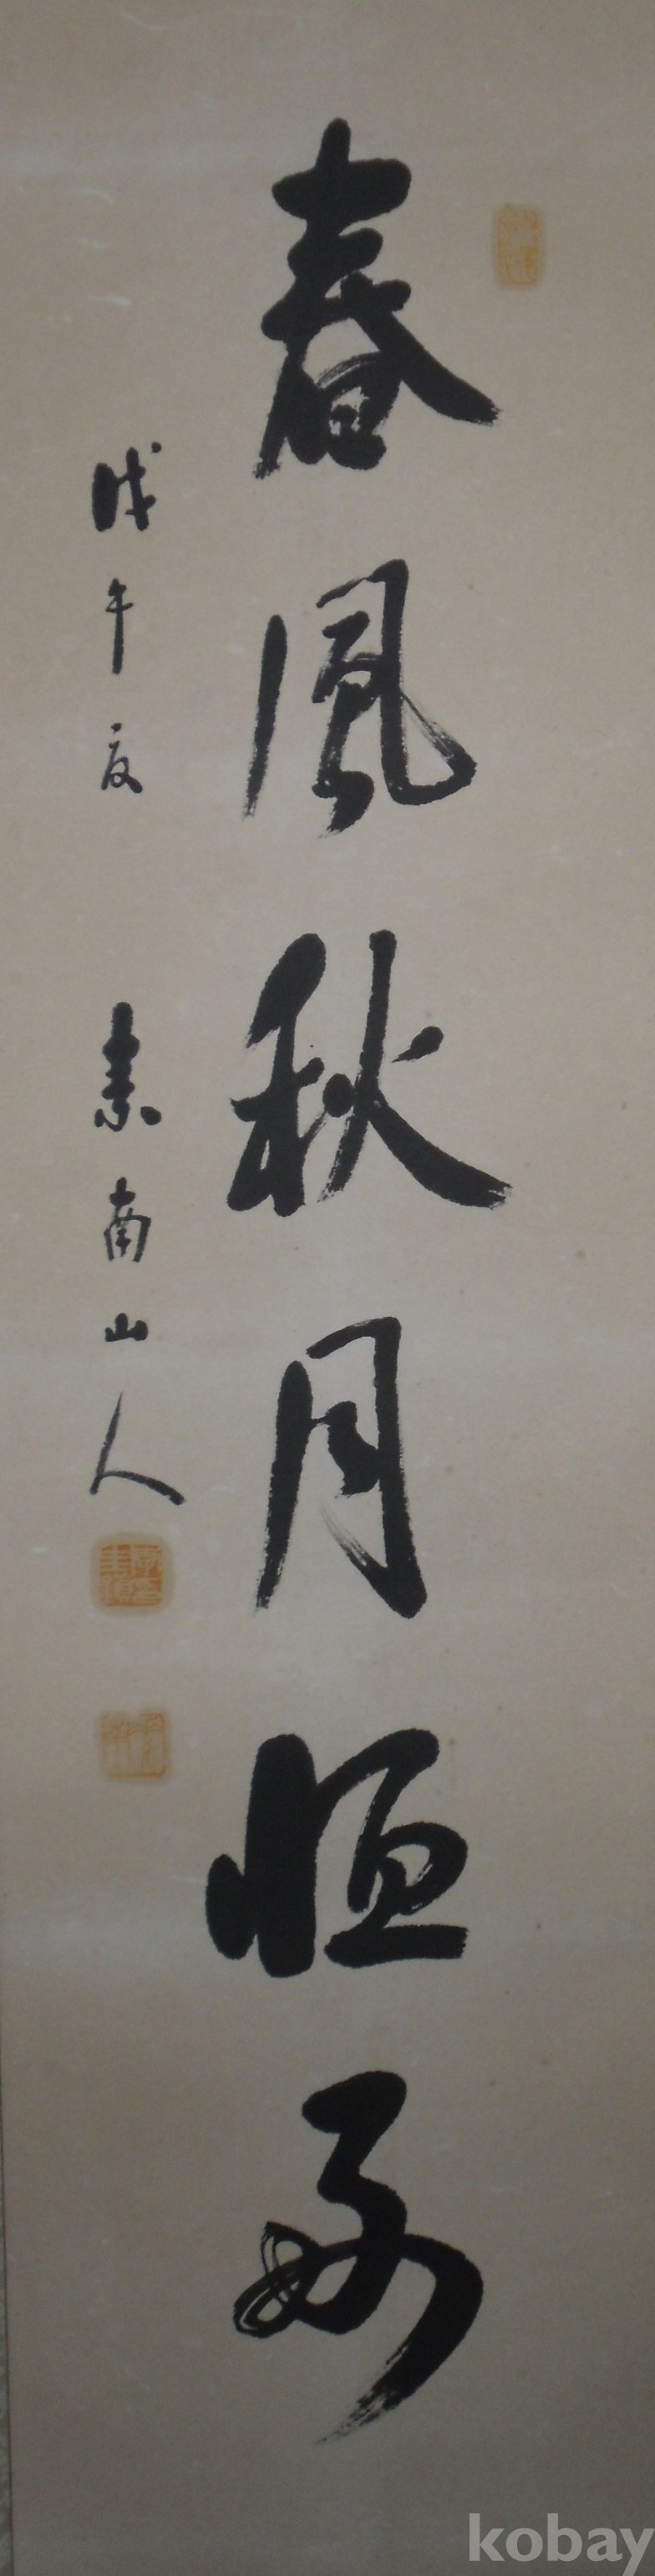 春風秋月恒好
戊午夏 素南山人
kobay